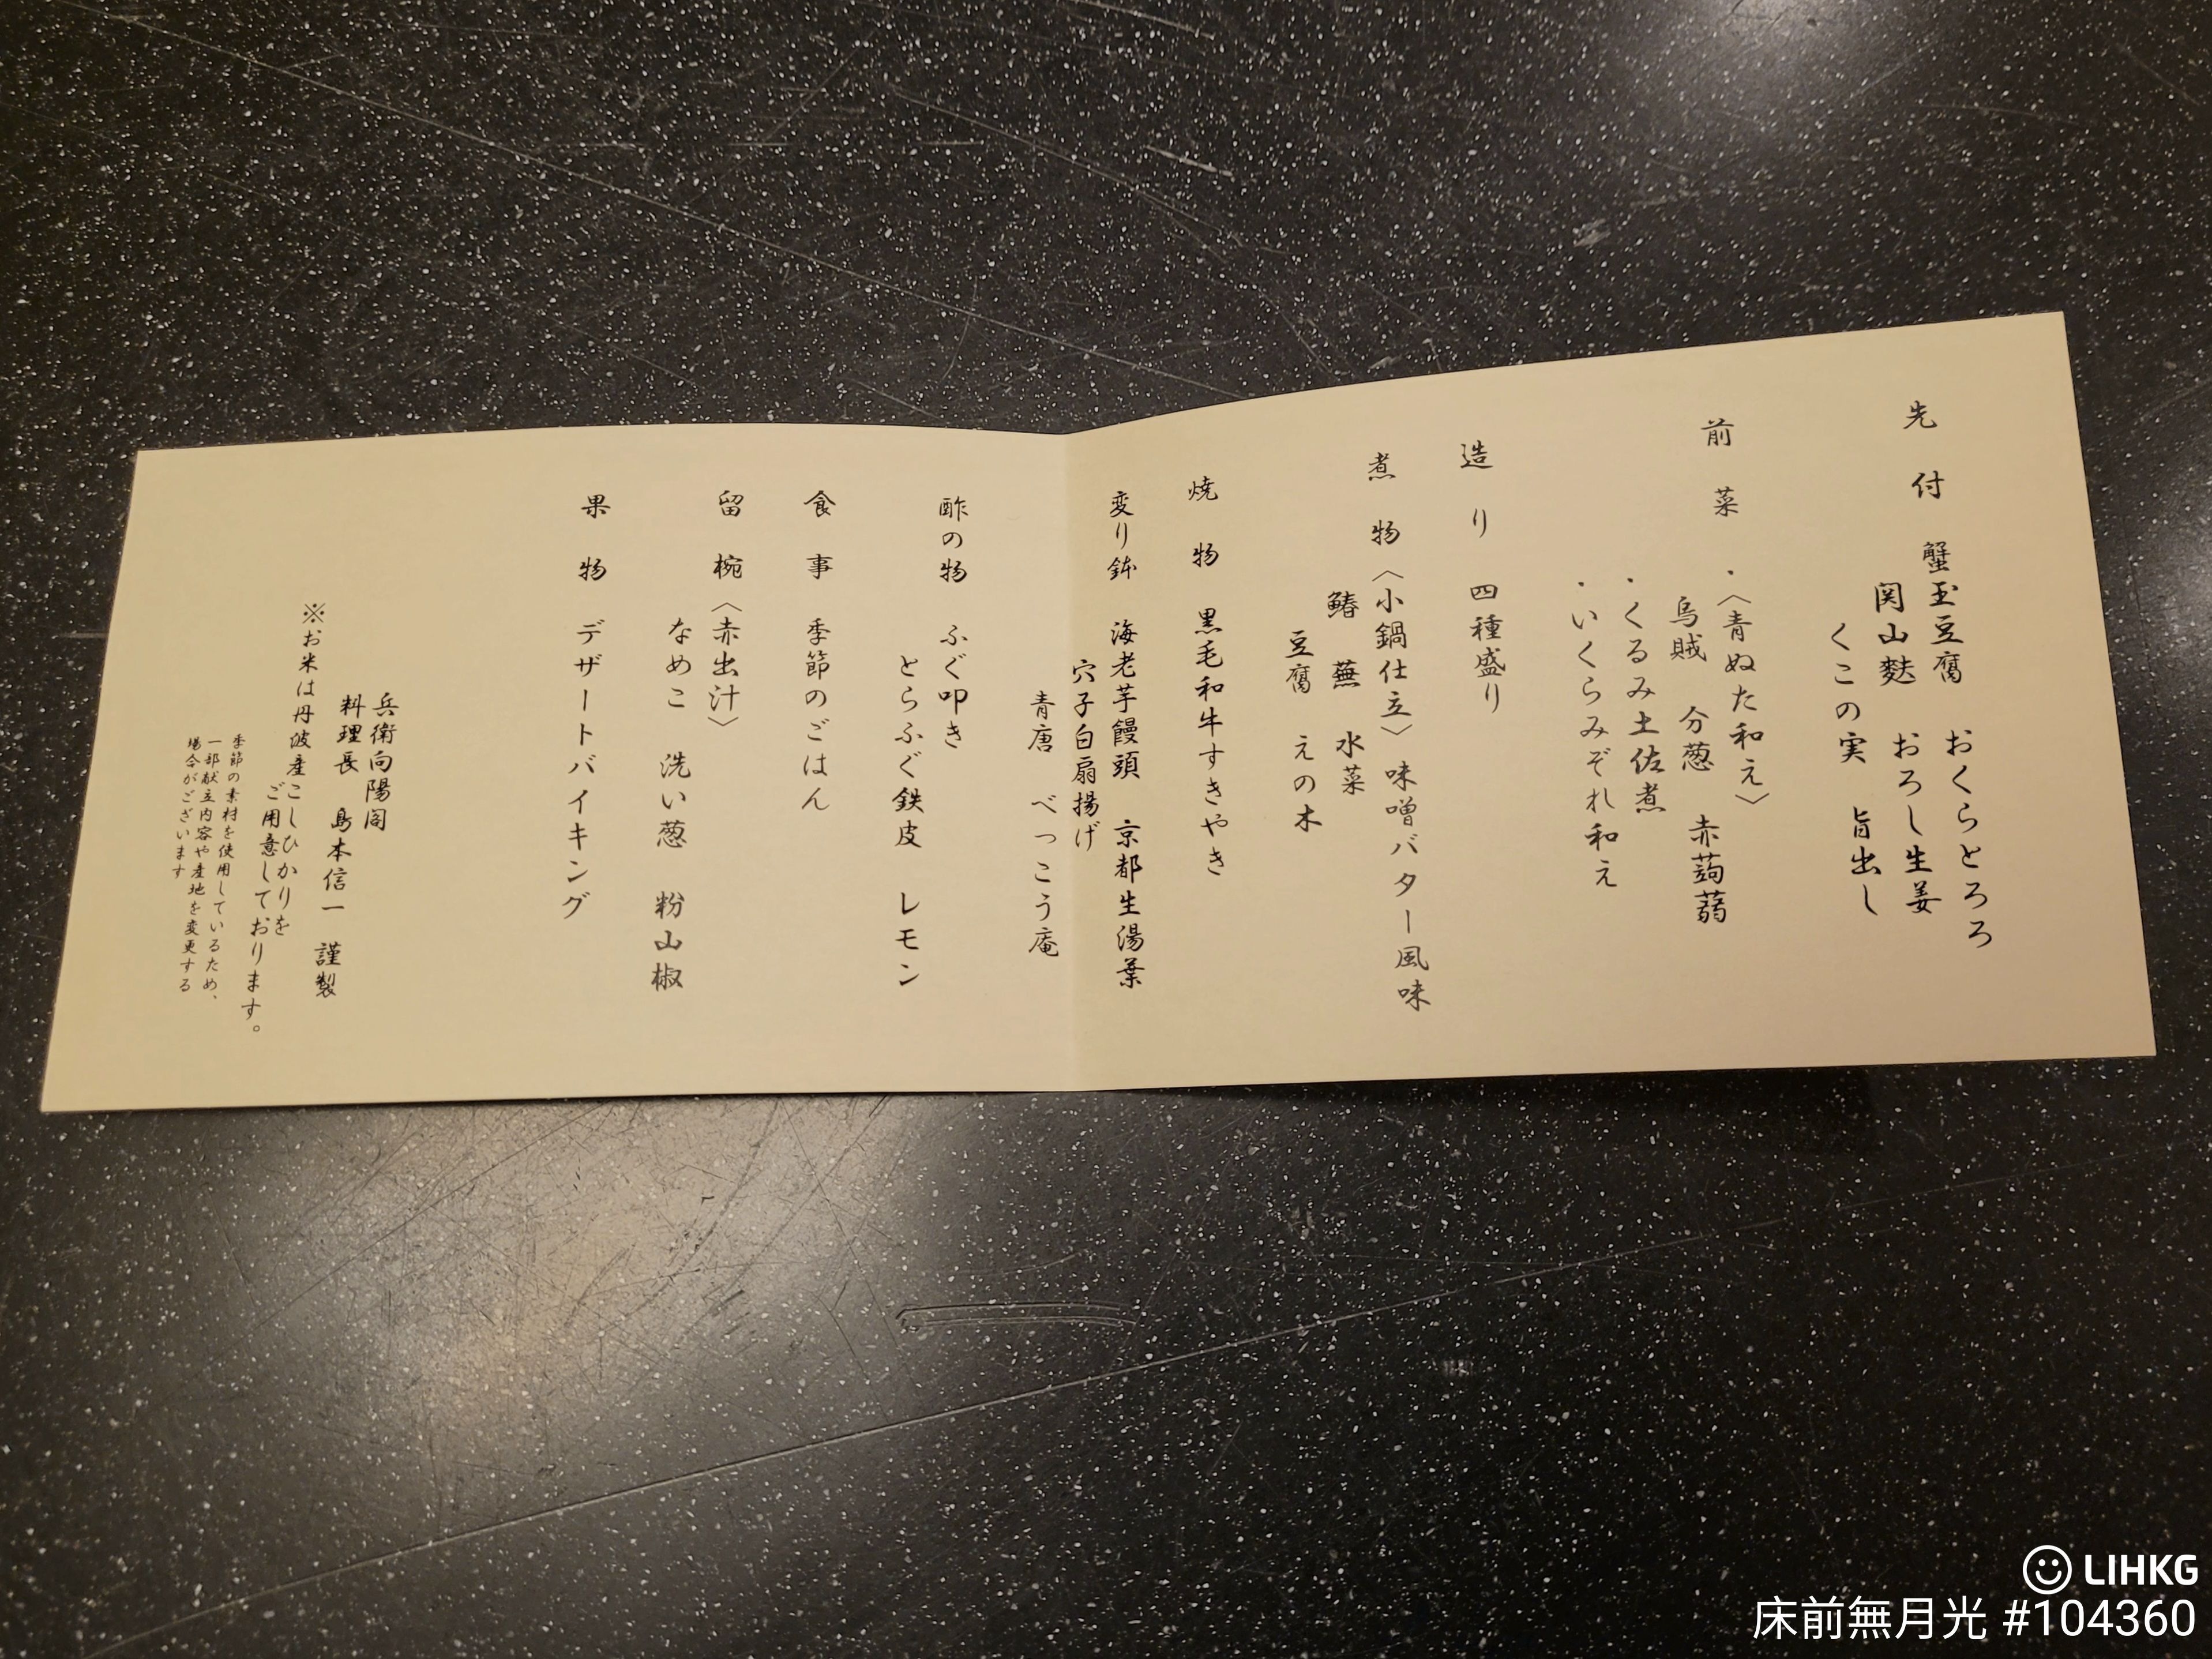 先付 蟹玉豆腐 おくらとろろ
関山麩 おろし生姜
くこの実 旨出し
前菜 ・〈青ぬた和え〉
烏賊 分葱 赤蒟蒻
・くるみ土佐煮
・いくらみぞれ和え
造り 四種盛り
煮物〈小鍋仕立〉味噌バター風味
鰆 蕪 水菜
豆腐 えの木
焼物 黒毛和牛すきやき
変り鉢 海老芋饅頭 京都生湯葉
穴子白扇揚げ
青唐 べっこう庵
酢の物 ふぐ叩き
とらふぐ鉄皮 レモン
食事 季節のごはん
留椀〈赤出汁〉
なめこ 洗い葱 粉山椒
果物 デザートバイキング
兵衛向陽閣
料理長 島本信一 謹製
※お米は丹波産こしひかりを
ご用意しております。
季節の素材を使用しているため、
一部献立内容や産地を変更する
場合がございます
LIHKG
床前無月光 #104360